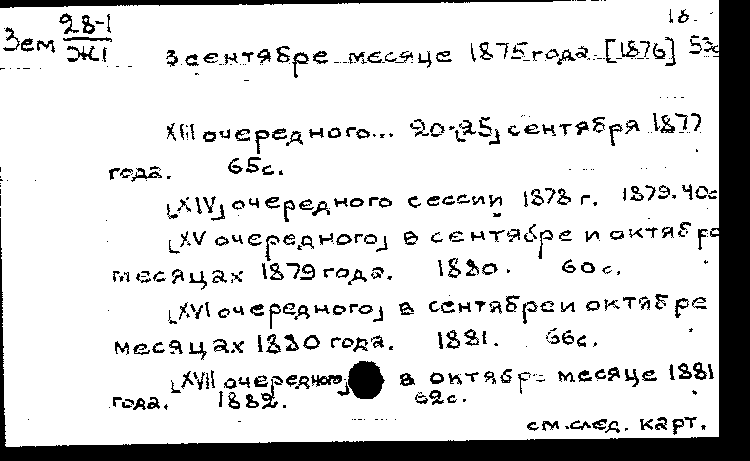 18.
Зем 28-1
ЖІ
в сентябре месяце 1875 года. [1876] 53с
XIII очередного... 20-[25] сентября 1877
года. 65с.
[XIV] очередного сессии 1878 г. 1879. 40с
[XV очередного] в сентябре и октябре
месяцах 1879 года. 1880. 60с.
[XVI очередного] в сентябре и октябре
месяцах 1880 года. 1881. 66с.
[XVII очередного] в октябре месяце 1881
года. 1882. 62с.
см. след. карт.